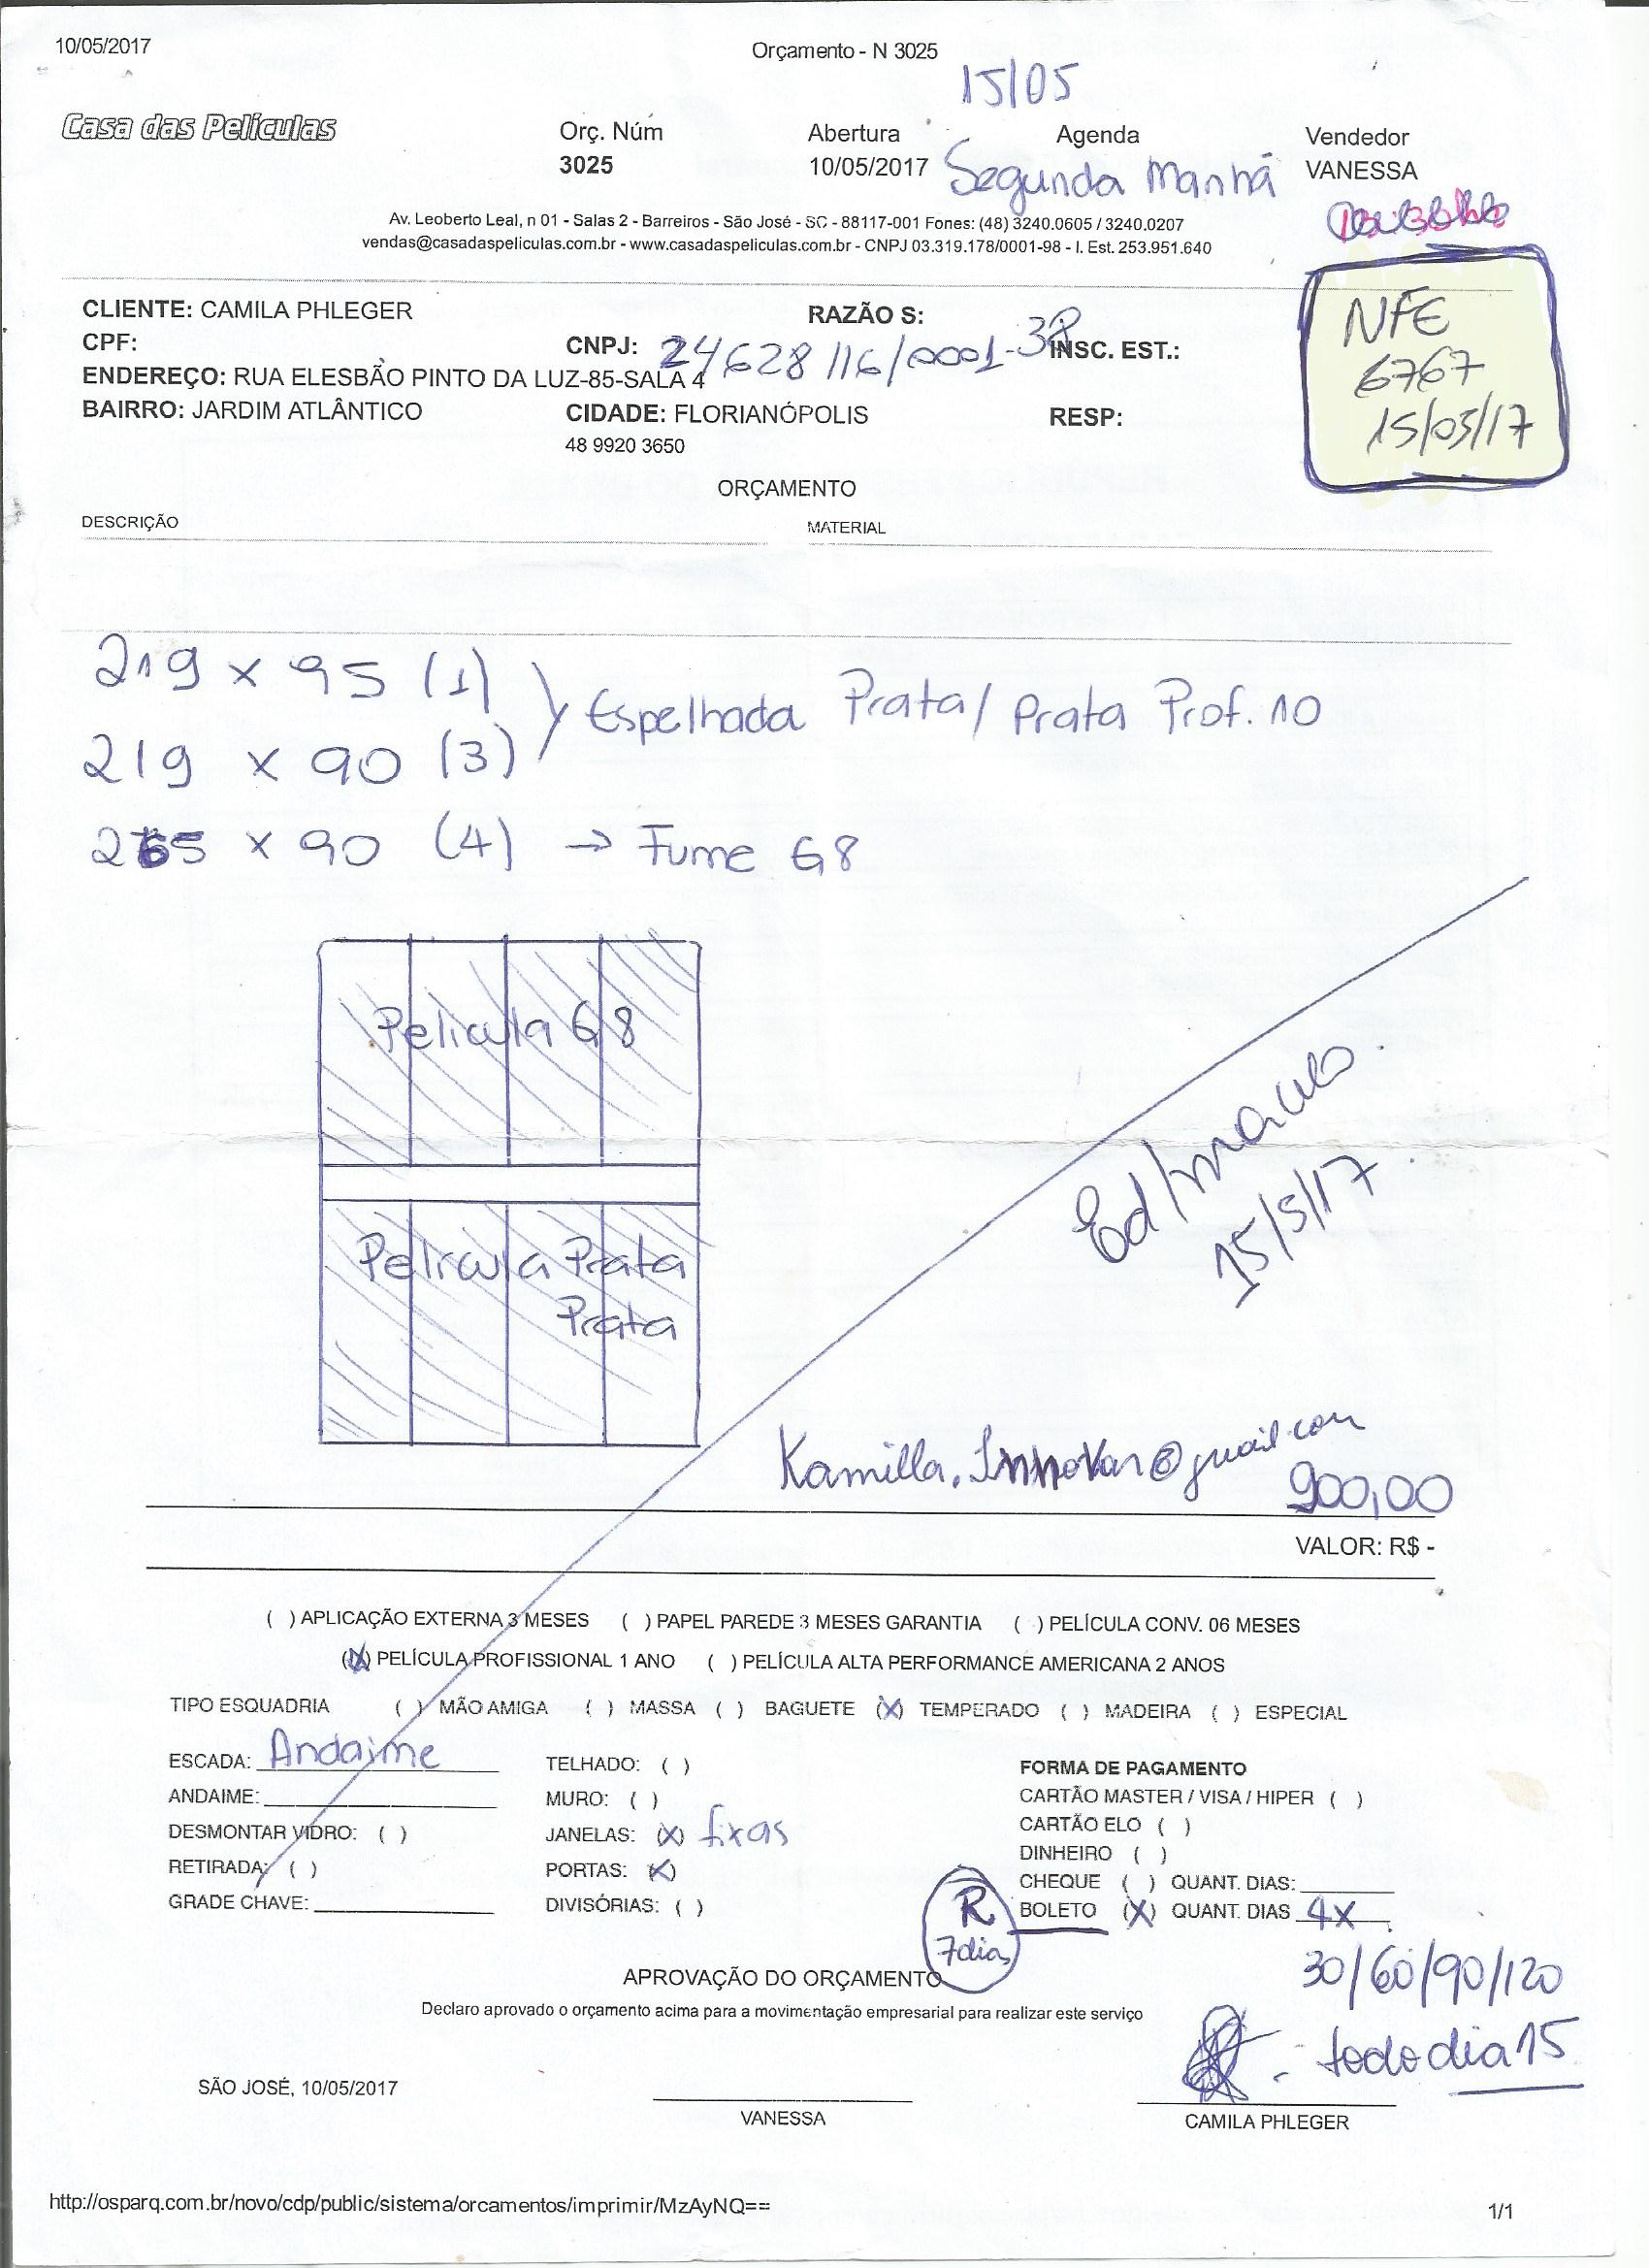 10/05/2017
Orçamento - N 3025
15/05
Casa das Películas
Orç. Núm
3025
Abertura
10/05/2017
Agenda
Segunda Manhã
Vendedor
VANESSA
Av. Leoberto Leal, n 01 - Salas 2 - Barreiros - São José - SC - 88117-001 Fones: (48) 3240.0605 / 3240.0207
vendas@casadaspeliculas.com.br - www.casadaspeliculas.com.br - CNPJ 03.319.178/0001-98 - I. Est. 253.951.640
NFE
6767
15/05/17
CLIENTE: CAMILA PHLEGER
RAZÃO S:
CPF:
CNPJ: 24628116/0001-38
INSC. EST.:
ENDEREÇO: RUA ELESBÃO PINTO DA LUZ-85-SALA 4
BAIRRO: JARDIM ATLÂNTICO
CIDADE: FLORIANÓPOLIS
RESP:
48 9920 3650
ORÇAMENTO
DESCRIÇÃO
MATERIAL
219 x 95 (1)
219 x 90 (3)
Espelhada Prata/ Prata Prof. 10
265 x 90 (4) → Fume G8
Pelicula G8
Pelicula Prata
Prata
15/5/17
900,00
VALOR: R$ -
( ) APLICAÇÃO EXTERNA 3 MESES ( ) PAPEL PAREDE 3 MESES GARANTIA ( ) PELÍCULA CONV. 06 MESES
(X) PELÍCULA PROFISSIONAL 1 ANO ( ) PELÍCULA ALTA PERFORMANCE AMERICANA 2 ANOS
TIPO ESQUADRIA ( ) MÃO AMIGA ( ) MASSA ( ) BAGUETE (X) TEMPERADO ( ) MADEIRA ( ) ESPECIAL
ESCADA: Andaime
ANDAIME:
DESMONTAR VIDRO: ( )
RETIRADA: ( )
GRADE CHAVE:
TELHADO: ( )
MURO: ( )
JANELAS: (X) fixas
PORTAS: (X)
DIVISÓRIAS: ( )
FORMA DE PAGAMENTO
CARTÃO MASTER / VISA / HIPER ( )
CARTÃO ELO ( )
DINHEIRO ( )
CHEQUE ( ) QUANT. DIAS:
BOLETO (X) QUANT. DIAS 4x
R
7 dias
30/60/90/120
todo dia 15
APROVAÇÃO DO ORÇAMENTO
Declaro aprovado o orçamento acima para a movimentação empresarial para realizar este serviço
SÃO JOSÉ, 10/05/2017
VANESSA
CAMILA PHLEGER
http://osparq.com.br/novo/cdp/public/sistema/orcamentos/imprimir/MzAyNQ==
1/1